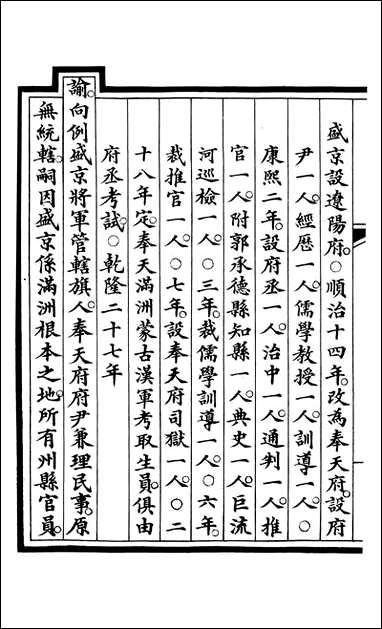 盛京設遼陽府○順治十四年改為奉天府設府
尹一人經歷一人儒學教授一人訓導一人○
康熙二年設府丞一人治中一人通判一人推
官一人附郭承德縣知縣一人典史一人巨流
河巡檢一人○三年裁儒學訓導一人○六年
裁推官一人○七年設奉天府司獄一人○二
十八年定奉天滿洲蒙古漢軍考取生員俱由
府丞考試○乾隆二十七年
諭向例盛京將軍管轄旗人奉天府府尹兼理民事原
無統轄嗣因盛京係滿洲根本之地所有州縣官員